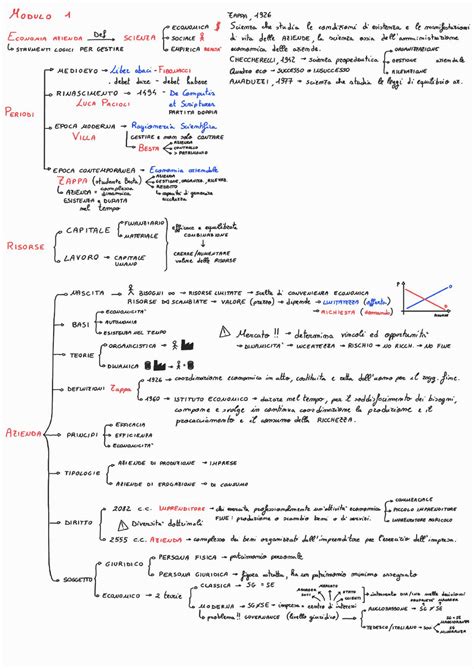 MODULO 1
ECONOMIA AZIENDA Def SCIENZA
ECONOMICA $
SOCIALE
EMPIRICA REALTÀ
STRUMENTI LOGICI PER GESTIRE
ZAPPA, 1926
Scienza che studia le condizioni di esistenza e le manifestazioni
di vita delle AZIENDE, la scienza ossia dell'amministrazione
economica delle aziende.
CHECCHERELLI, 1942 → scienza propedeutica
ORGANIZZAZIONE
GESTIONE aziendale
RILEVAZIONE
Quadro eco → SUCCESSO o INSUCCESSO
AMADUZZI, 1977 → scienza che studia le leggi di equilibrio az.
PERIODI
MEDIOEVO → Liber abaci - FIBONACCI
debet dare - debet habere
RINASCIMENTO → 1494 - De Computis
LUCA PACIOLI et Scripturis
PARTITA DOPPIA
EPOCA MODERNA → Ragioneria Scientifica
VILLA
GESTIRE e non solo CONTARE
BESTA
AZIENDA
CONTROLLO
PATRIMONIO
EPOCA CONTEMPORANEA → Economia aziendale
ZAPPA (studente Besta)
AZIENDA
GESTIONE, ORGANIZZ, RILEVAZ.
REDDITO
capacità di generare
ricchezza
AZIENDA = complessa
dinamica
ESISTENZA e DURATA
nel tempo
RISORSE
CAPITALE
FINANZIARIO
MATERIALE
efficace e equilibrata
COMBINAZIONE
LAVORO → CAPITALE
UMANO
CREARE/AUMENTARE
valore delle RISORSE
AZIENDA
NASCITA → BISOGNI ∞ → RISORSE LIMITATE → scelta di CONVENIENZA ECONOMICA
RISORSE DA SCAMBIARE → VALORE (prezzo) → dipende
LIMITATEZZA (offerta)
RICHIESTA (domanda)
P
BASI
ECONOMICITÀ
AUTONOMIA
ESISTENZA NEL TEMPO
Mercato !! → determina vincoli ed opportunità
DINAMICITÀ → INCERTEZZA → RISCHIO → NO RICCH. → NO FINE
TEORIE
ORGANICISTICA
DINAMICA
DEFINIZIONI Zappa
1926 → coordinazione economica in atto, costituita e retta dall'uomo per il sogg. fine.
1960 → ISTITUTO ECONOMICO → durare nel tempo, per il soddisfacimento dei bisogni,
compone e svolge in continua coordinazione la produzione e il
procacciamento e il consumo della RICCHEZZA.
PRINCIPI
EFFICACIA
EFFICIENZA
ECONOMICITÀ
TIPOLOGIE
AZIENDE DI PRODUZIONE → IMPRESE
AZIENDE DI EROGAZIONE → DI CONSUMO
DIRITTO
2082 c.c. IMPRENDITORE → chi esercita professionalmente un'attività economica
FINE: produzione o scambio beni o di servizi.
COMMERCIALE
PICCOLO IMPRENDITORE
IMPRENDITORE AGRICOLO
Diversità dottrinali
2555 c.c. AZIENDA → complesso da beni organizzati dall'imprenditore per l'esercizio dell'impresa.
SOGGETTO
GIURIDICO
PERSONA FISICA → patrimonio personale
PERSONA GIURIDICA → figura astratta, ha un patrimonio minimo assegnato
ECONOMICO → 2 teorie
CLASSICA → SG = SE
MODERNA → SG≠SE → impresa = centro di interessi
MERCATO
STATO
CLIENTI
problema!! GOVERNANCE (livello giuridico)
ANGLOSASSONE → SG ≠ SE
TEDESCO/ITALIANO → SOG